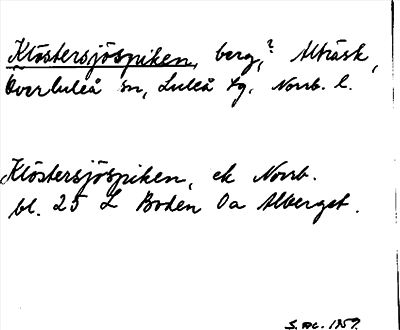 Klöstersjöspiken, berg,? Alträsk,
Överluleå sn, Luleå tg. Norrb. l.
Klöstersjöspiken, ek Norrb.
bl. 25 L Boden Oa Alberget.
1959.